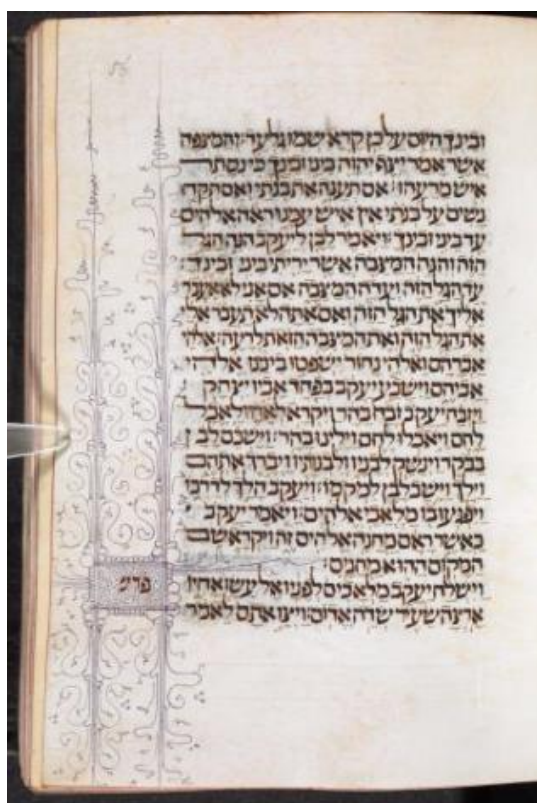 ובינך היום על כן קרא שמו גלעד: והמצפה
אשר אמר יצף יהוה ביני ובינך כי נסתר
איש מרעהו: אם תענה את בנתי ואם תקח
נשים על בנתי אין איש עמנו ראה אלהים
עד ביני ובינך: ויאמר לבן ליעקב הנה הגל
הזה והנה המצבה אשר יריתי ביני ובינך:
עד הגל הזה ועדה המצבה אם אני לא אעבר
אליך את הגל הזה ואם אתה לא תעבר אלי
את הגל הזה ואת המצבה הזאת לרעה: אלהי
אברהם ואלהי נחור ישפטו בינינו אלהי
אביהם וישבע יעקב בפחד אביו יצחק
ויזבח יעקב זבח בהר ויקרא לאחיו לאכל
לחם ויאכלו לחם וילינו בהר: וישכם לבן
בבקר וינשק לבניו ולבנותיו ויברך אתהם
וילך וישב לבן למקמו: ויעקב הלך לדרכו
ויפגעו בו מלאכי אלהים: ויאמר יעקב
כאשר ראם מחנה אלהים זה ויקרא שם
המקום ההוא מחנים:
פרש
וישלח יעקב מלאכים לפניו אל עשו אחיו
ארצה שעיר שדה אדום: ויצו אתם לאמר